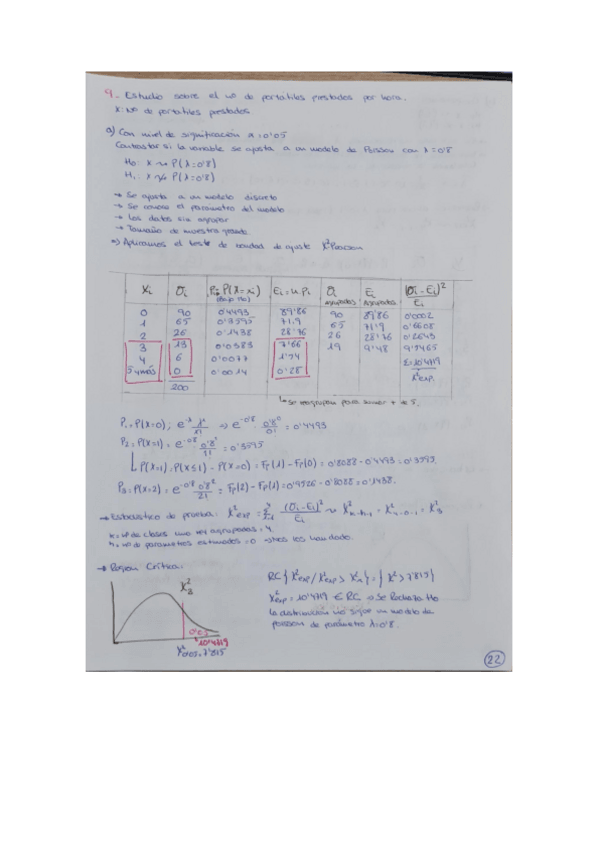 9.- Estudio sobre el nº de portátiles prestados por hora.
X: Nº de portátiles prestados
a) Con nivel de significación α = 0'05
Contrastar si la variable se ajusta a un modelo de Poisson con λ = 0'8
H₀: X ~ P(λ=0'8)
H₁: X ≁ P(λ=0'8)
→ Se ajusta a un modelo discreto
→ Se conoce el parámetro del modelo
→ Los datos sin agrupar
→ Tamaño de muestra grande
⇒ Aplicamos el test de bondad de ajuste χ² Pearson
Xi Oi Pi = P(X=xi) (bajo H₀) Ei = n·pi Oi agrupados Ei Agrupados (Oi-Ei)²/Ei
0 90 0'4493 89'86 90 89'86 0'0002
1 65 0'3595 71'9 65 71'9 0'6608
2 26 0'1438 28'76 26 28'76 0'2643
3 13 0'0383 7'66 19 9'48 9'5465
4 6 0'0077 1'54 Σ=10'4719
5 y más 0 0'0014 0'28 χ²exp.
200
↳ se reagrupan para sumar + de 5.
P₁ = P(X=0); e^-λ λ^x/x! ⇒ e^-0'8 · 0'8⁰/0! = 0'4493
P₂ = P(X=1) = e^-0'8 · 0'8¹/1! = 0'3595
↳ P(X=1) = P(X≤1) - P(X=0) = Fp(1) - Fp(0) = 0'8088 - 0'4493 = 0'3595.
P₃ = P(X=2) = e^-0'8 0'8²/2! = Fp(2) - Fp(1) = 0'9526 - 0'8088 = 0'1438.
→ Estadístico de prueba: χ²exp = Σ (Oi-Ei)²/Ei ~ χ²k-h-1 = χ²4-0-1 = χ²3
k = nº de clases una vez agrupadas = 4
h = nº de parámetros estimados = 0 → nos los han dado.
→ Región Crítica:
χ²3
RC { χ²exp / χ²exp > χ²α } = { χ² > 7'815 }
χ²exp = 10'4719 ∈ RC ⇒ Se Rechaza H₀
la distribución no sigue un modelo de
poisson de parámetro λ=0'8.
10'4719
χ²0'05 = 7'815
22